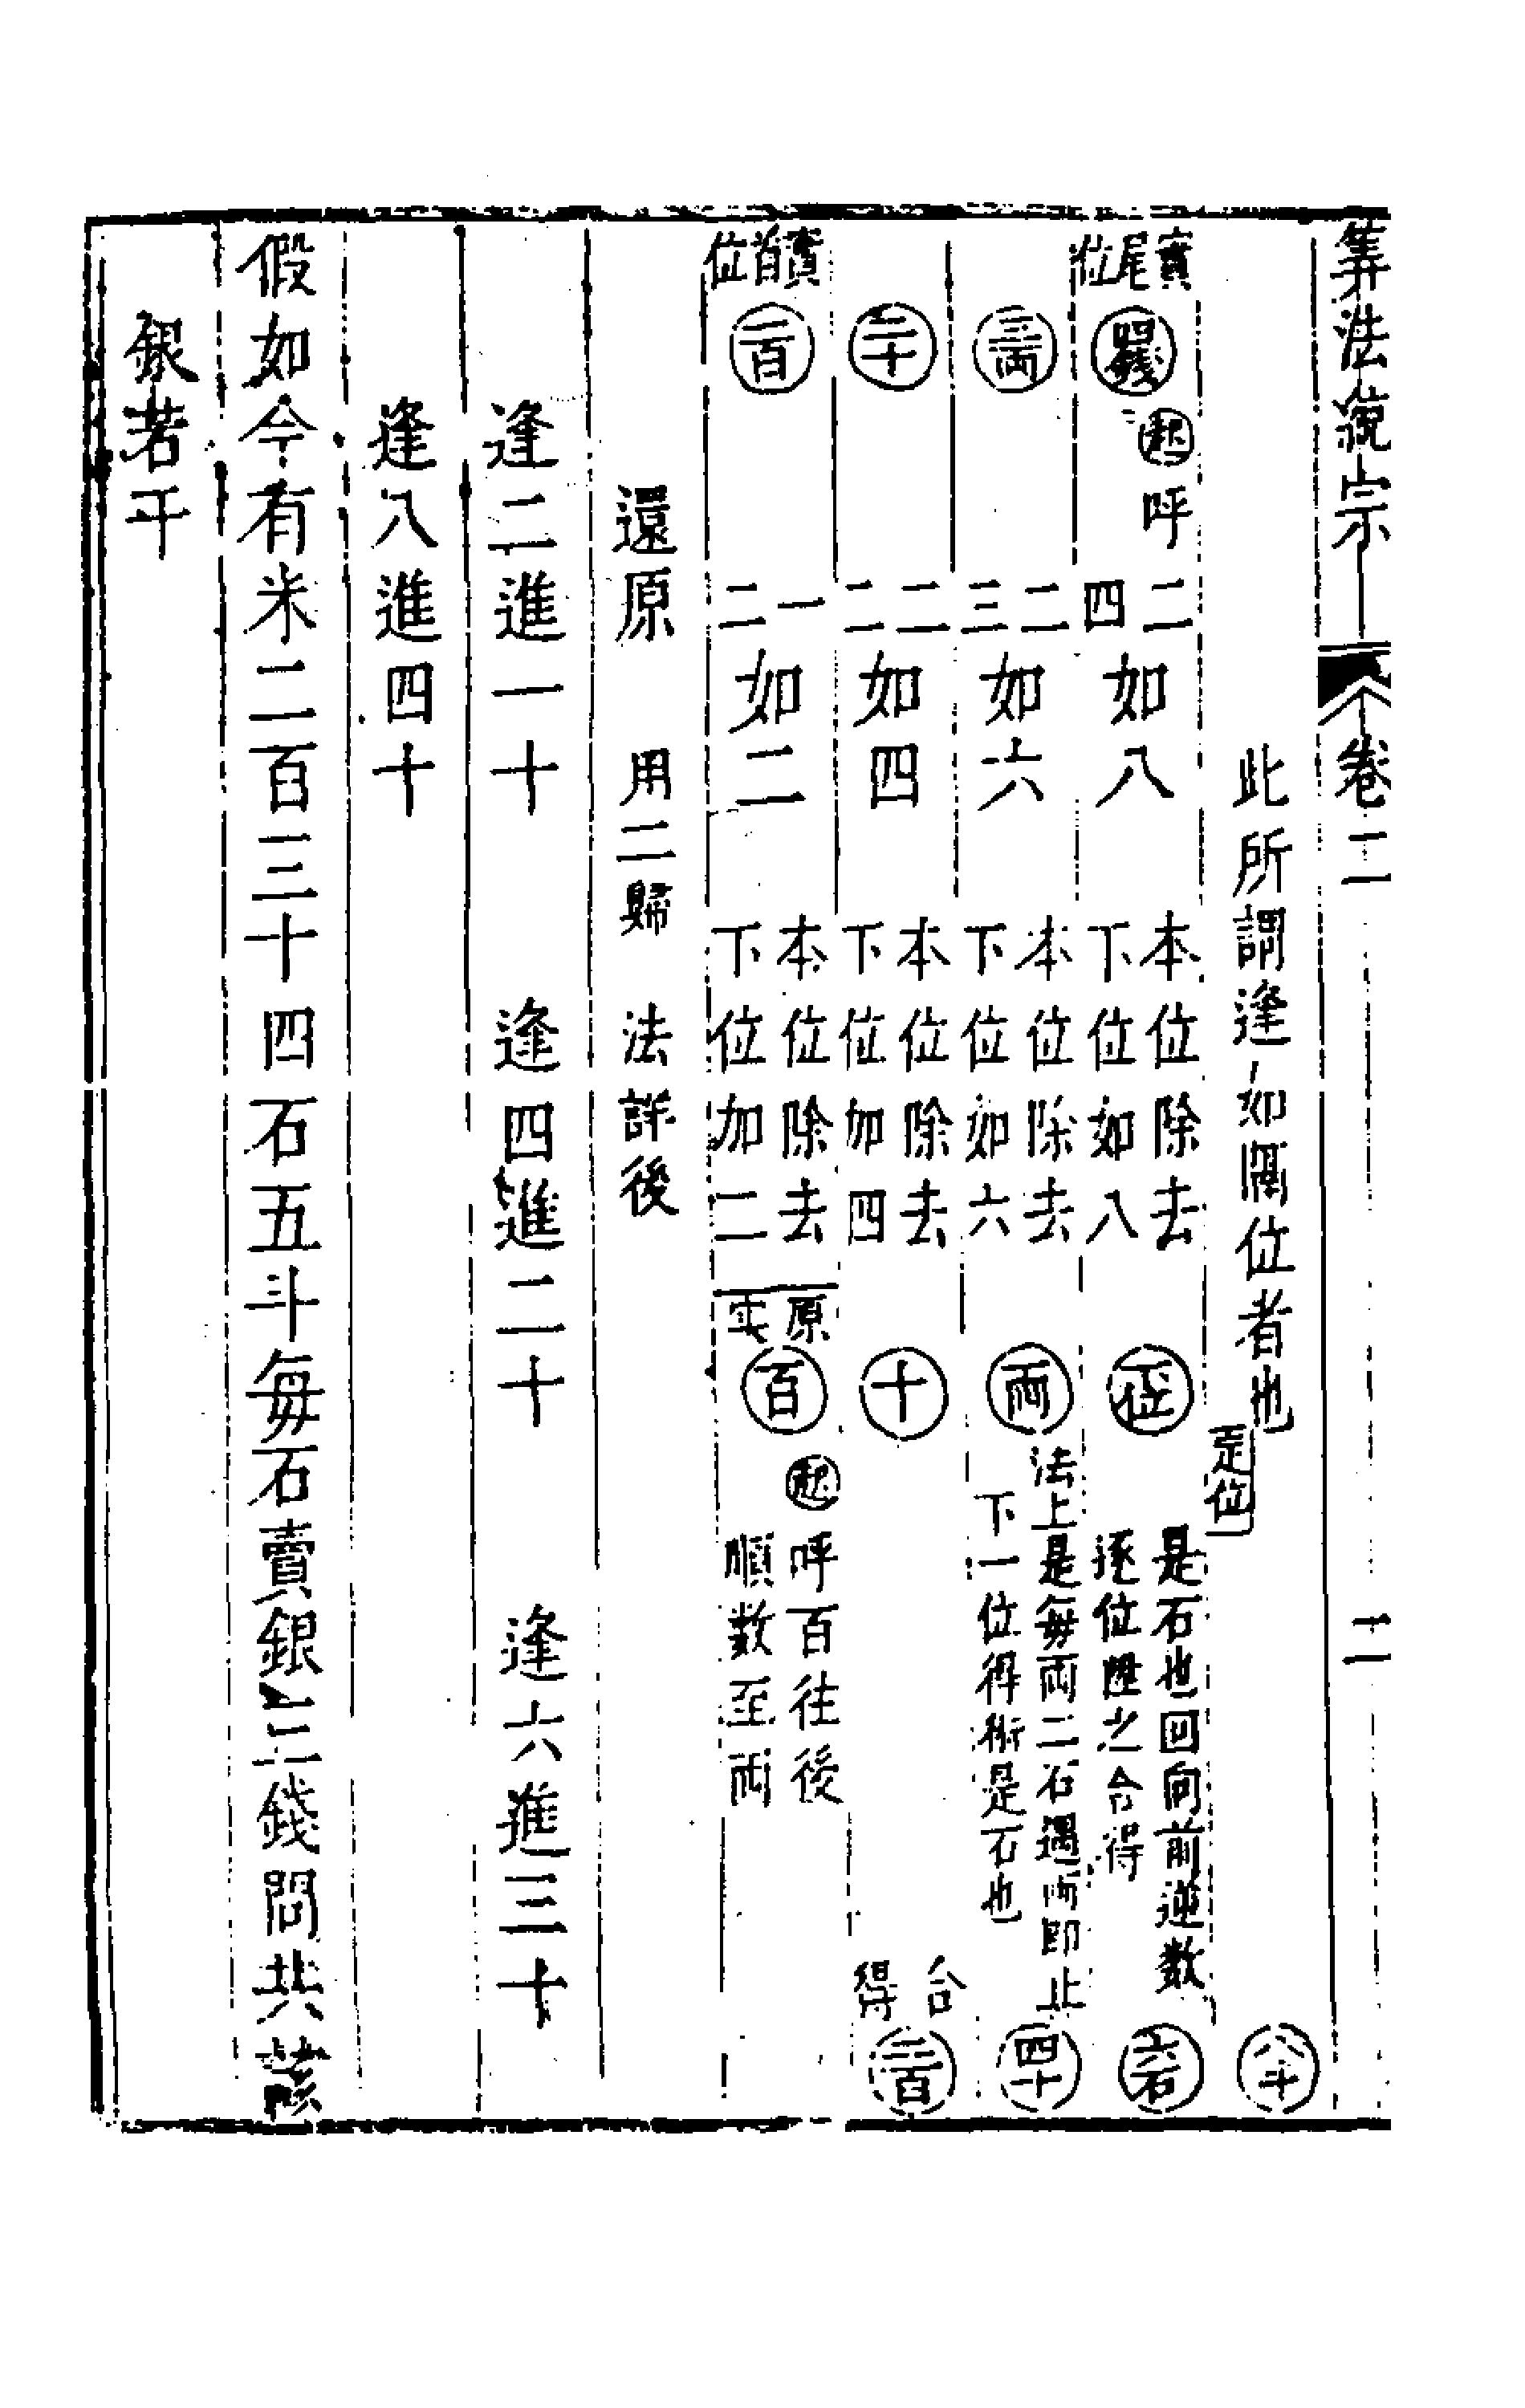 算法統宗 卷二 二
此所謂逢如隔位者也 定位 八斗
實尾位 四錢 起呼 二四如八 本位除去下位如八 石位 是石也回向前逆数逐位陞之合得 六石
三両 二三如六 本位除去下位如六 両 法上是每両二石遇両即止下一位得術是石也 四十
二十 二二如四 本位除去下位加四 十 合得 二百
實首位 一百 一二如二 本位除去下位加二 原实 百 起呼百往後順数至両
還原 用二歸 法詳後
逢二進一十 逢四進二十 逢六進三十
逢八進四十
假如今有米二百三十四石五斗每石賣銀三錢問共該
銀若干